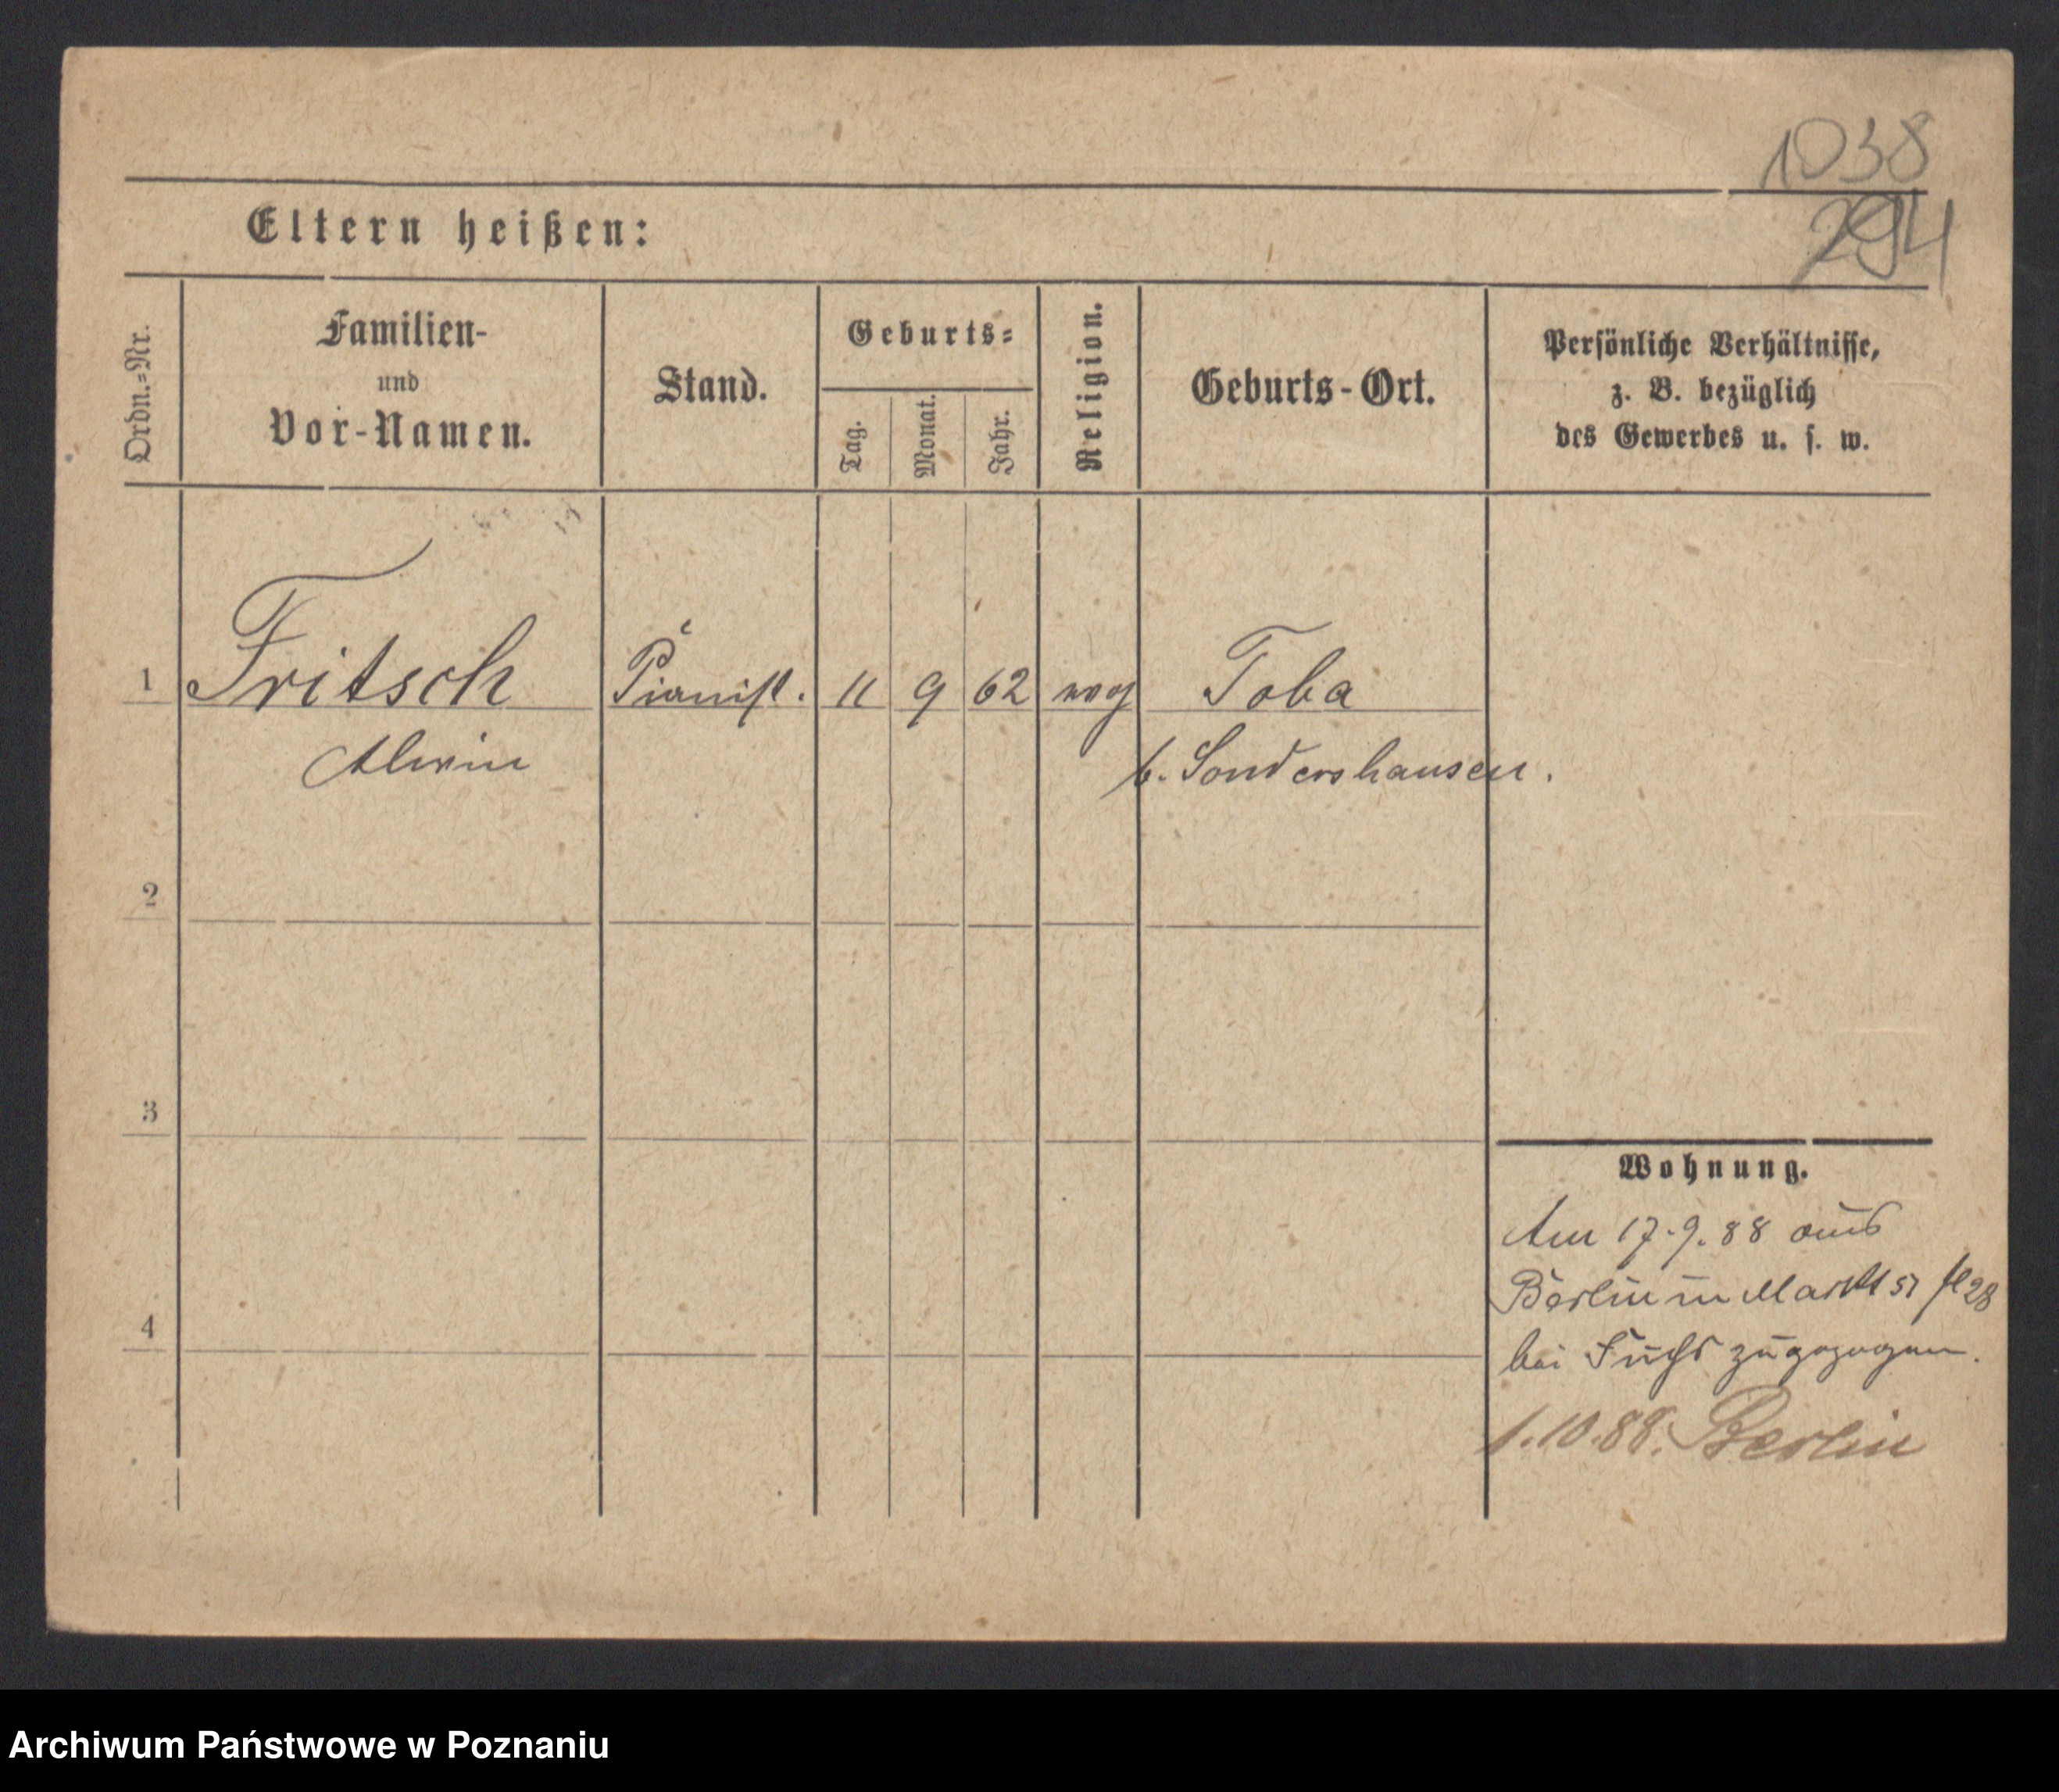 1038
294
Eltern heißen:
Ordn.=Nr.
Familien-
und
Vor-Namen.
Stand.
Geburts=
Tag.
Monat.
Jahr.
Religion.
Geburts-Ort.
Persönliche Verhältnisse,
z. B. bezüglich
des Gewerbes u. s. w.
1 Fritsch Pianist. 11 9 62 evg Toba
Alwin b. Sondershausen.
2
3
4
Wohnung.
Am 17.9.88 aus
Berlin n Markt 51
bei Fuchs zugezogen.
1.10.88. Berlin
Archiwum Państwowe w Poznaniu